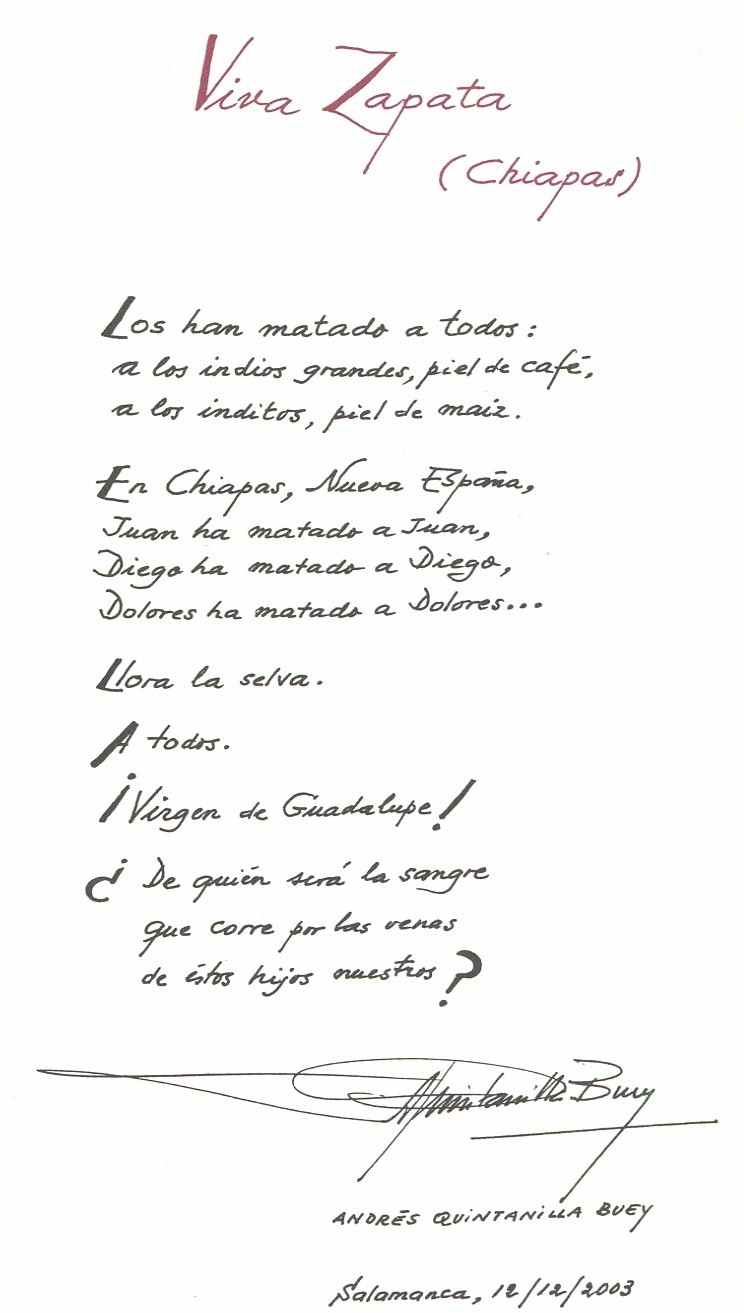 Viva Zapata
(Chiapas)
Los han matado a todos:
a los indios grandes, piel de café,
a los inditos, piel de maiz.
En Chiapas, Nueva España,
Juan ha matado a Juan,
Diego ha matado a Diego,
Dolores ha matado a Dolores...
Llora la selva.
A todos.
¡Virgen de Guadalupe!
¿De quién será la sangre
que corre por las venas
de éstos hijos nuestros?
AQuintanilla Buey
ANDRÉS QUINTANILLA BUEY
Salamanca, 12/12/2003